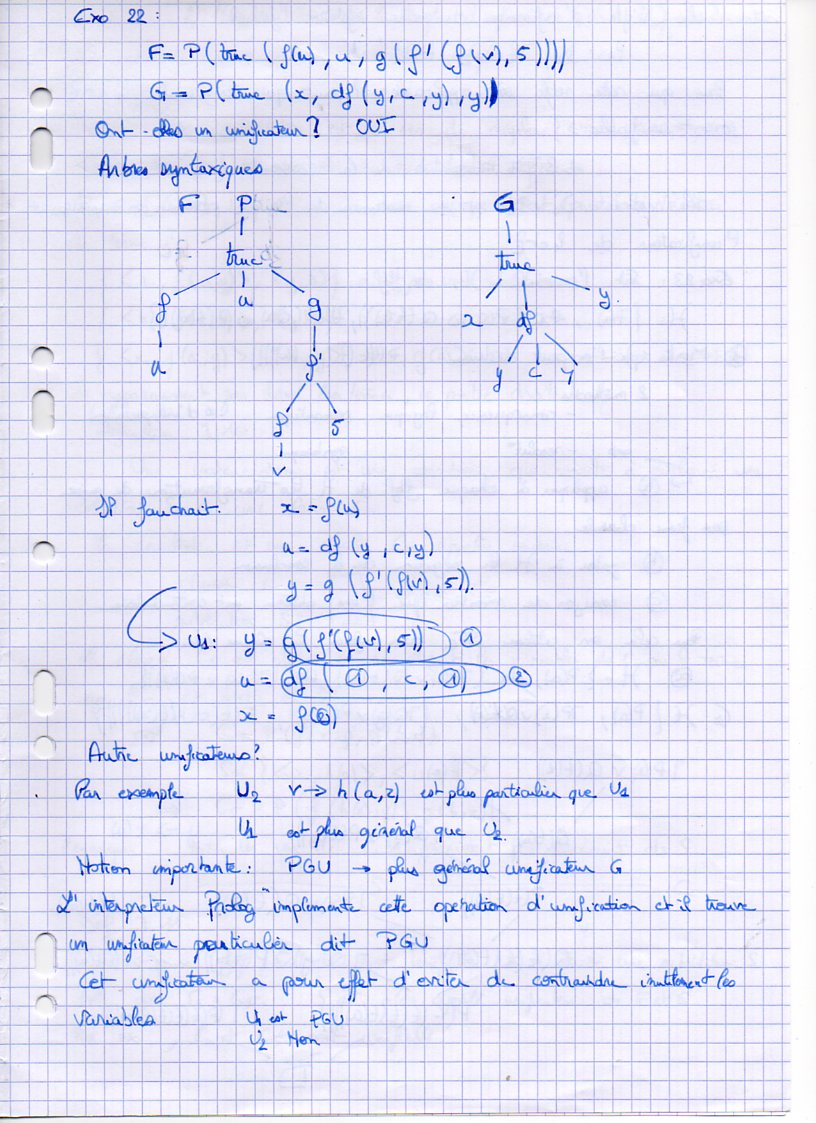 Exo 22 :
F = P( truc ( f(u) , u , g ( f' (f(v), 5))))
G = P( truc (x, df (y, c, y), y))
Ont-elles un unificateur ? OUI
Arbres syntaxiques
F P G
truc truc
f u g x df y
u f' y c y
f 5
v
Il faudrait : x = f(u)
u = df (y, c, y)
y = g (f'(f(v), 5)).
U1 : y = g (f'(f(v), 5)) ①
u = df ( ①, c, ①) ②
x = f(②)
Autre unificateurs ?
Par exemple U2 v → h(a,z) est plus particulier que U1
U1 est plus général que U2.
Notion importante : PGU → plus général unificateur G
L'interpreteur "Prolog" implemente cette operation d'unification et il trouve
un unificateur particulier dit PGU
Cet unificateur a pour effet d'eviter de contraindre inutilement les
variables U1 est PGU
U2 Non